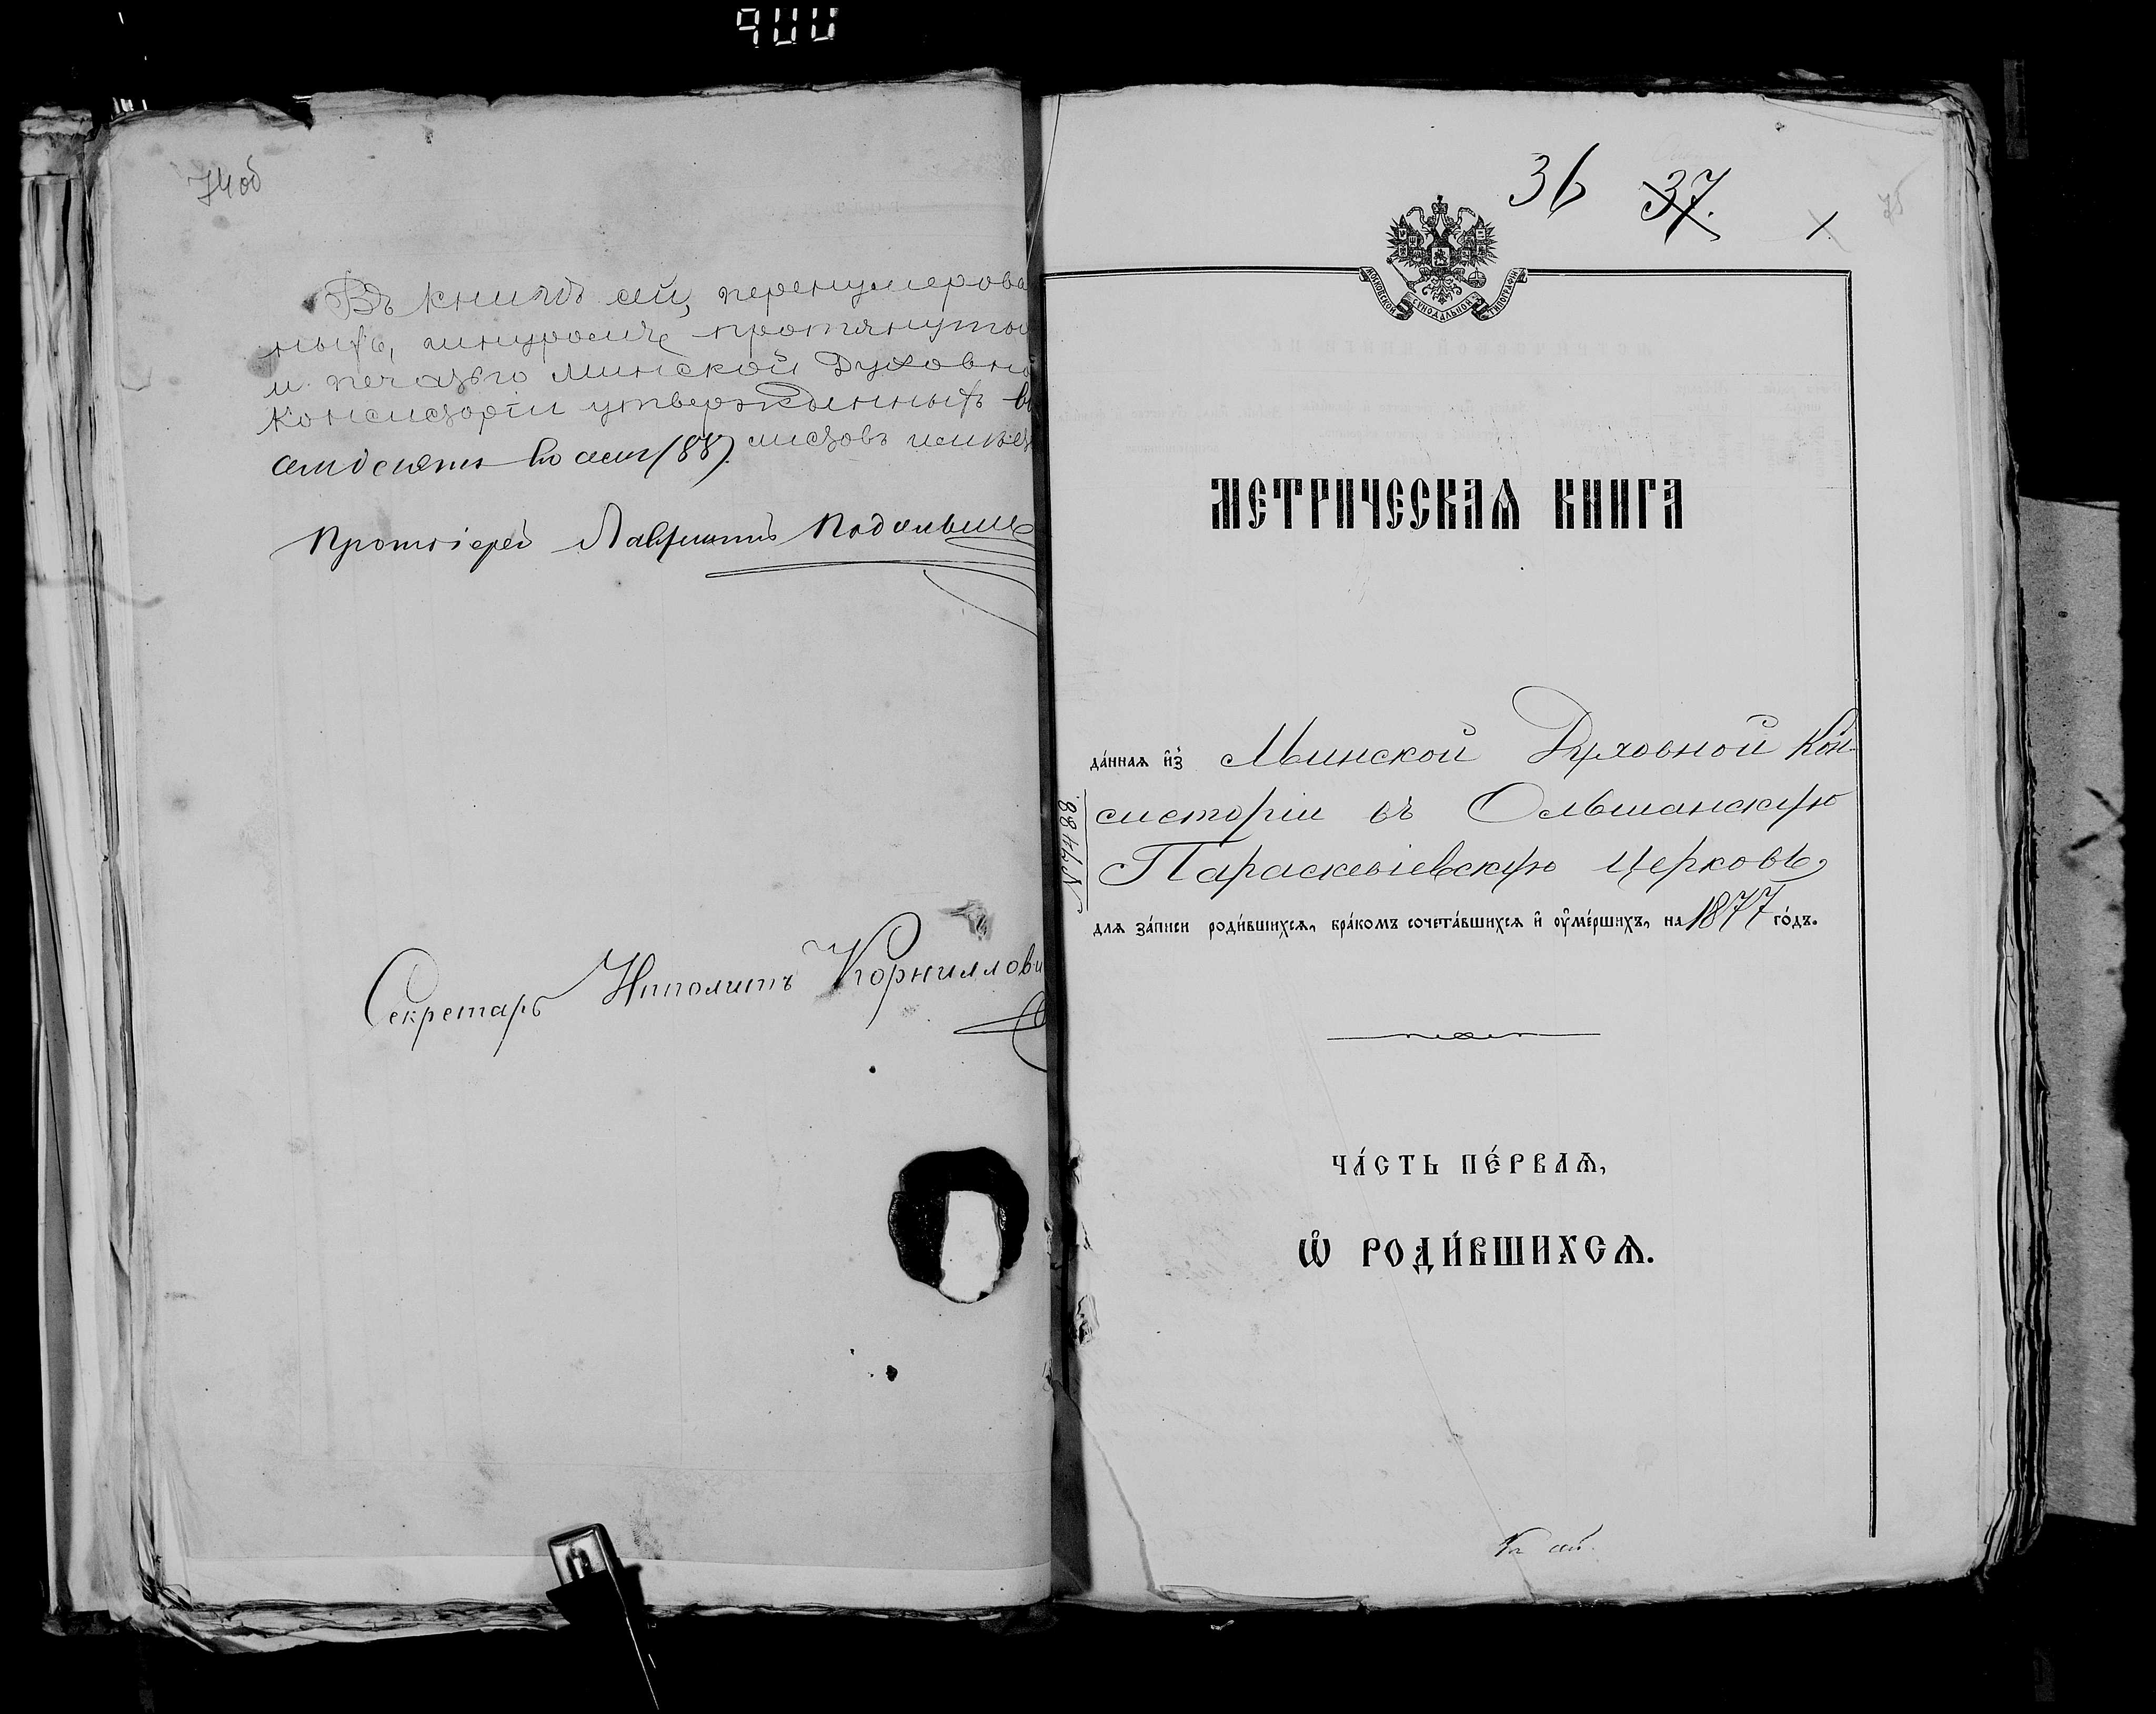 900
74 об
Въ книгѣ сей, перенумерова
ныхъ, шнуромъ протянуты
и печатью Минской Духовно
Консисторіи утвержденныхъ во
семдесятъ восемь (88) листовъ имѣет
Протоіерей Лаврентій Подольск
Секретарь Ипполитъ Корниллови
36 37. 1. 75
МОСКОВСКОЙ СѴНОДАЛЬНОЙ ТИПОГРАФІИ
МЕТРИЧЕСКАѦ КНИГА
да́ннаѧ и҆з̾ Минской Духовной Кон-
систоріи въ Ольшанскую
Параскевіевскую Церковь,
№ 7488.
длѧ за́писи роди́вшихсѧ, бра́комъ сочета́вшихсѧ и҆ оу҆ме́ршихъ, на 1877 го́дъ.
ЧА́СТЬ ПЕ́РВАѦ,
Ѡ҆ РОДИ́ВШИХСѦ.